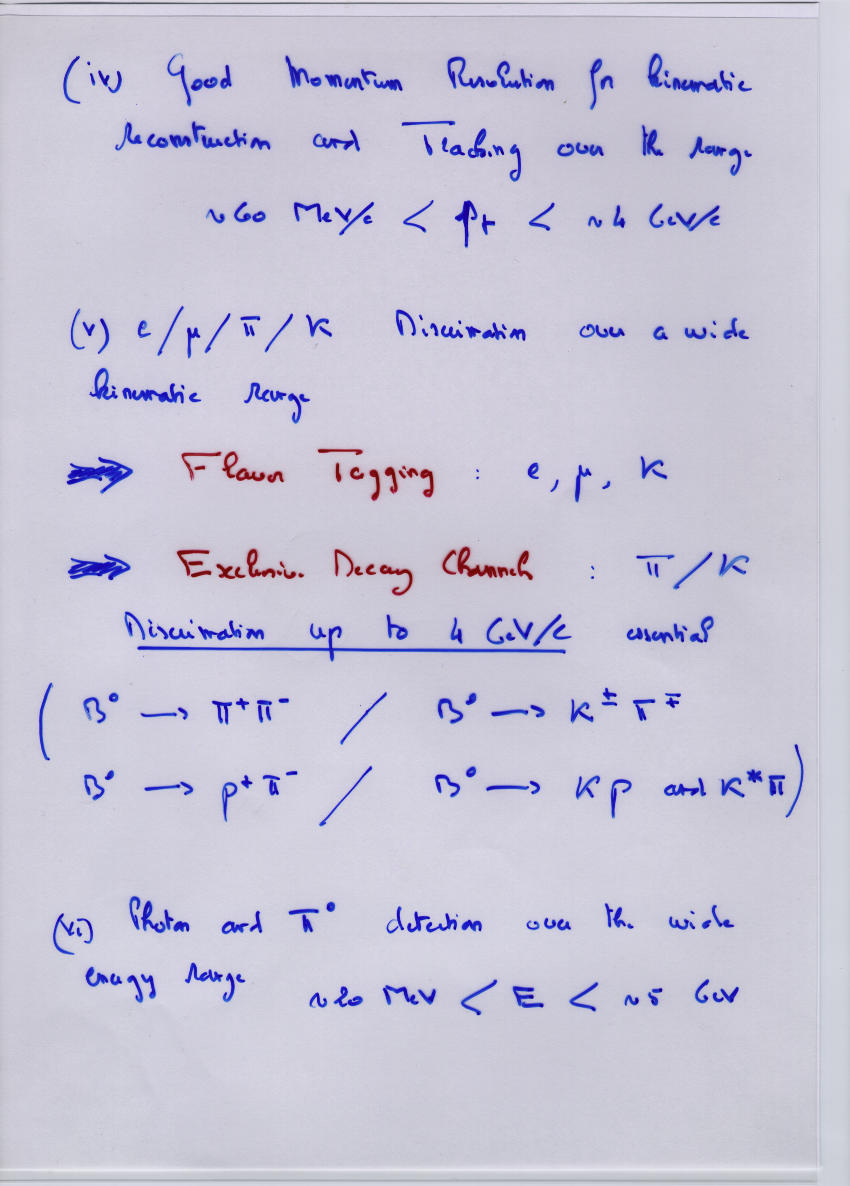 (iv) Good Momentum Resolution for kinematic
reconstruction and Tracking over the range
~60 MeV/c < pt < ~4 GeV/c
(v) e/μ/π/K Discrimination over a wide
kinematic range
⇒ Flavor Tagging : e, μ, K
⇒ Exclusive Decay Channels : π/K
Discrimination up to 4 GeV/c essential
( B⁰ → π⁺π⁻ / B⁰ → K±π∓
B⁰ → ρ⁺π⁻ / B⁰ → Kρ and K*π )
(vi) Photon and π⁰ detection over the wide
energy range ~20 MeV < E < ~5 GeV